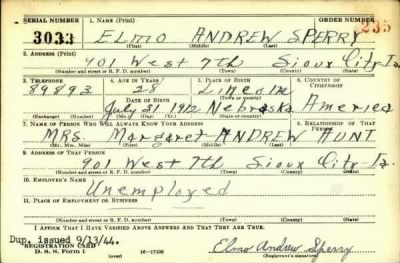 SERIAL NUMBER 1. NAME (Print) ORDER NUMBER
3033 ELMO ANDREW SPERRY 235
(First) (Middle) (Last)
2. ADDRESS (Print)
901 West 7th Sioux City Ia
(Number and street or R. F. D. number) (Town) (County) (State)
3. TELEPHONE 4. AGE IN YEARS 5. PLACE OF BIRTH 6. COUNTRY OF CITIZENSHIP
89893 28 Lincoln
DATE OF BIRTH (Town or county)
July 31 1912 Nebraska America
(Exchange) (No.) (Mo.) (Day) (Yr.) (State or country)
7. NAME OF PERSON WHO WILL ALWAYS KNOW YOUR ADDRESS 8. RELATIONSHIP OF THAT PERSON
MRS. Margaret ANDREW AUNT
(Mr., Mrs., Miss) (First) (Middle) (Last)
9. ADDRESS OF THAT PERSON
901 West 7th Sioux City Ia.
(Number and street or R. F. D. number) (Town) (County) (State)
10. EMPLOYER'S NAME
Unemployed
11. PLACE OF EMPLOYMENT OR BUSINESS
(Number and street or R. F. D. number) (Town) (County) (State)
I AFFIRM THAT I HAVE VERIFIED ABOVE ANSWERS AND THAT THEY ARE TRUE.
Dup. issued 9/13/44.
REGISTRATION CARD
D. S. S. Form 1 16-17105 Elmo Andrew Sperry
(Registrant's signature)